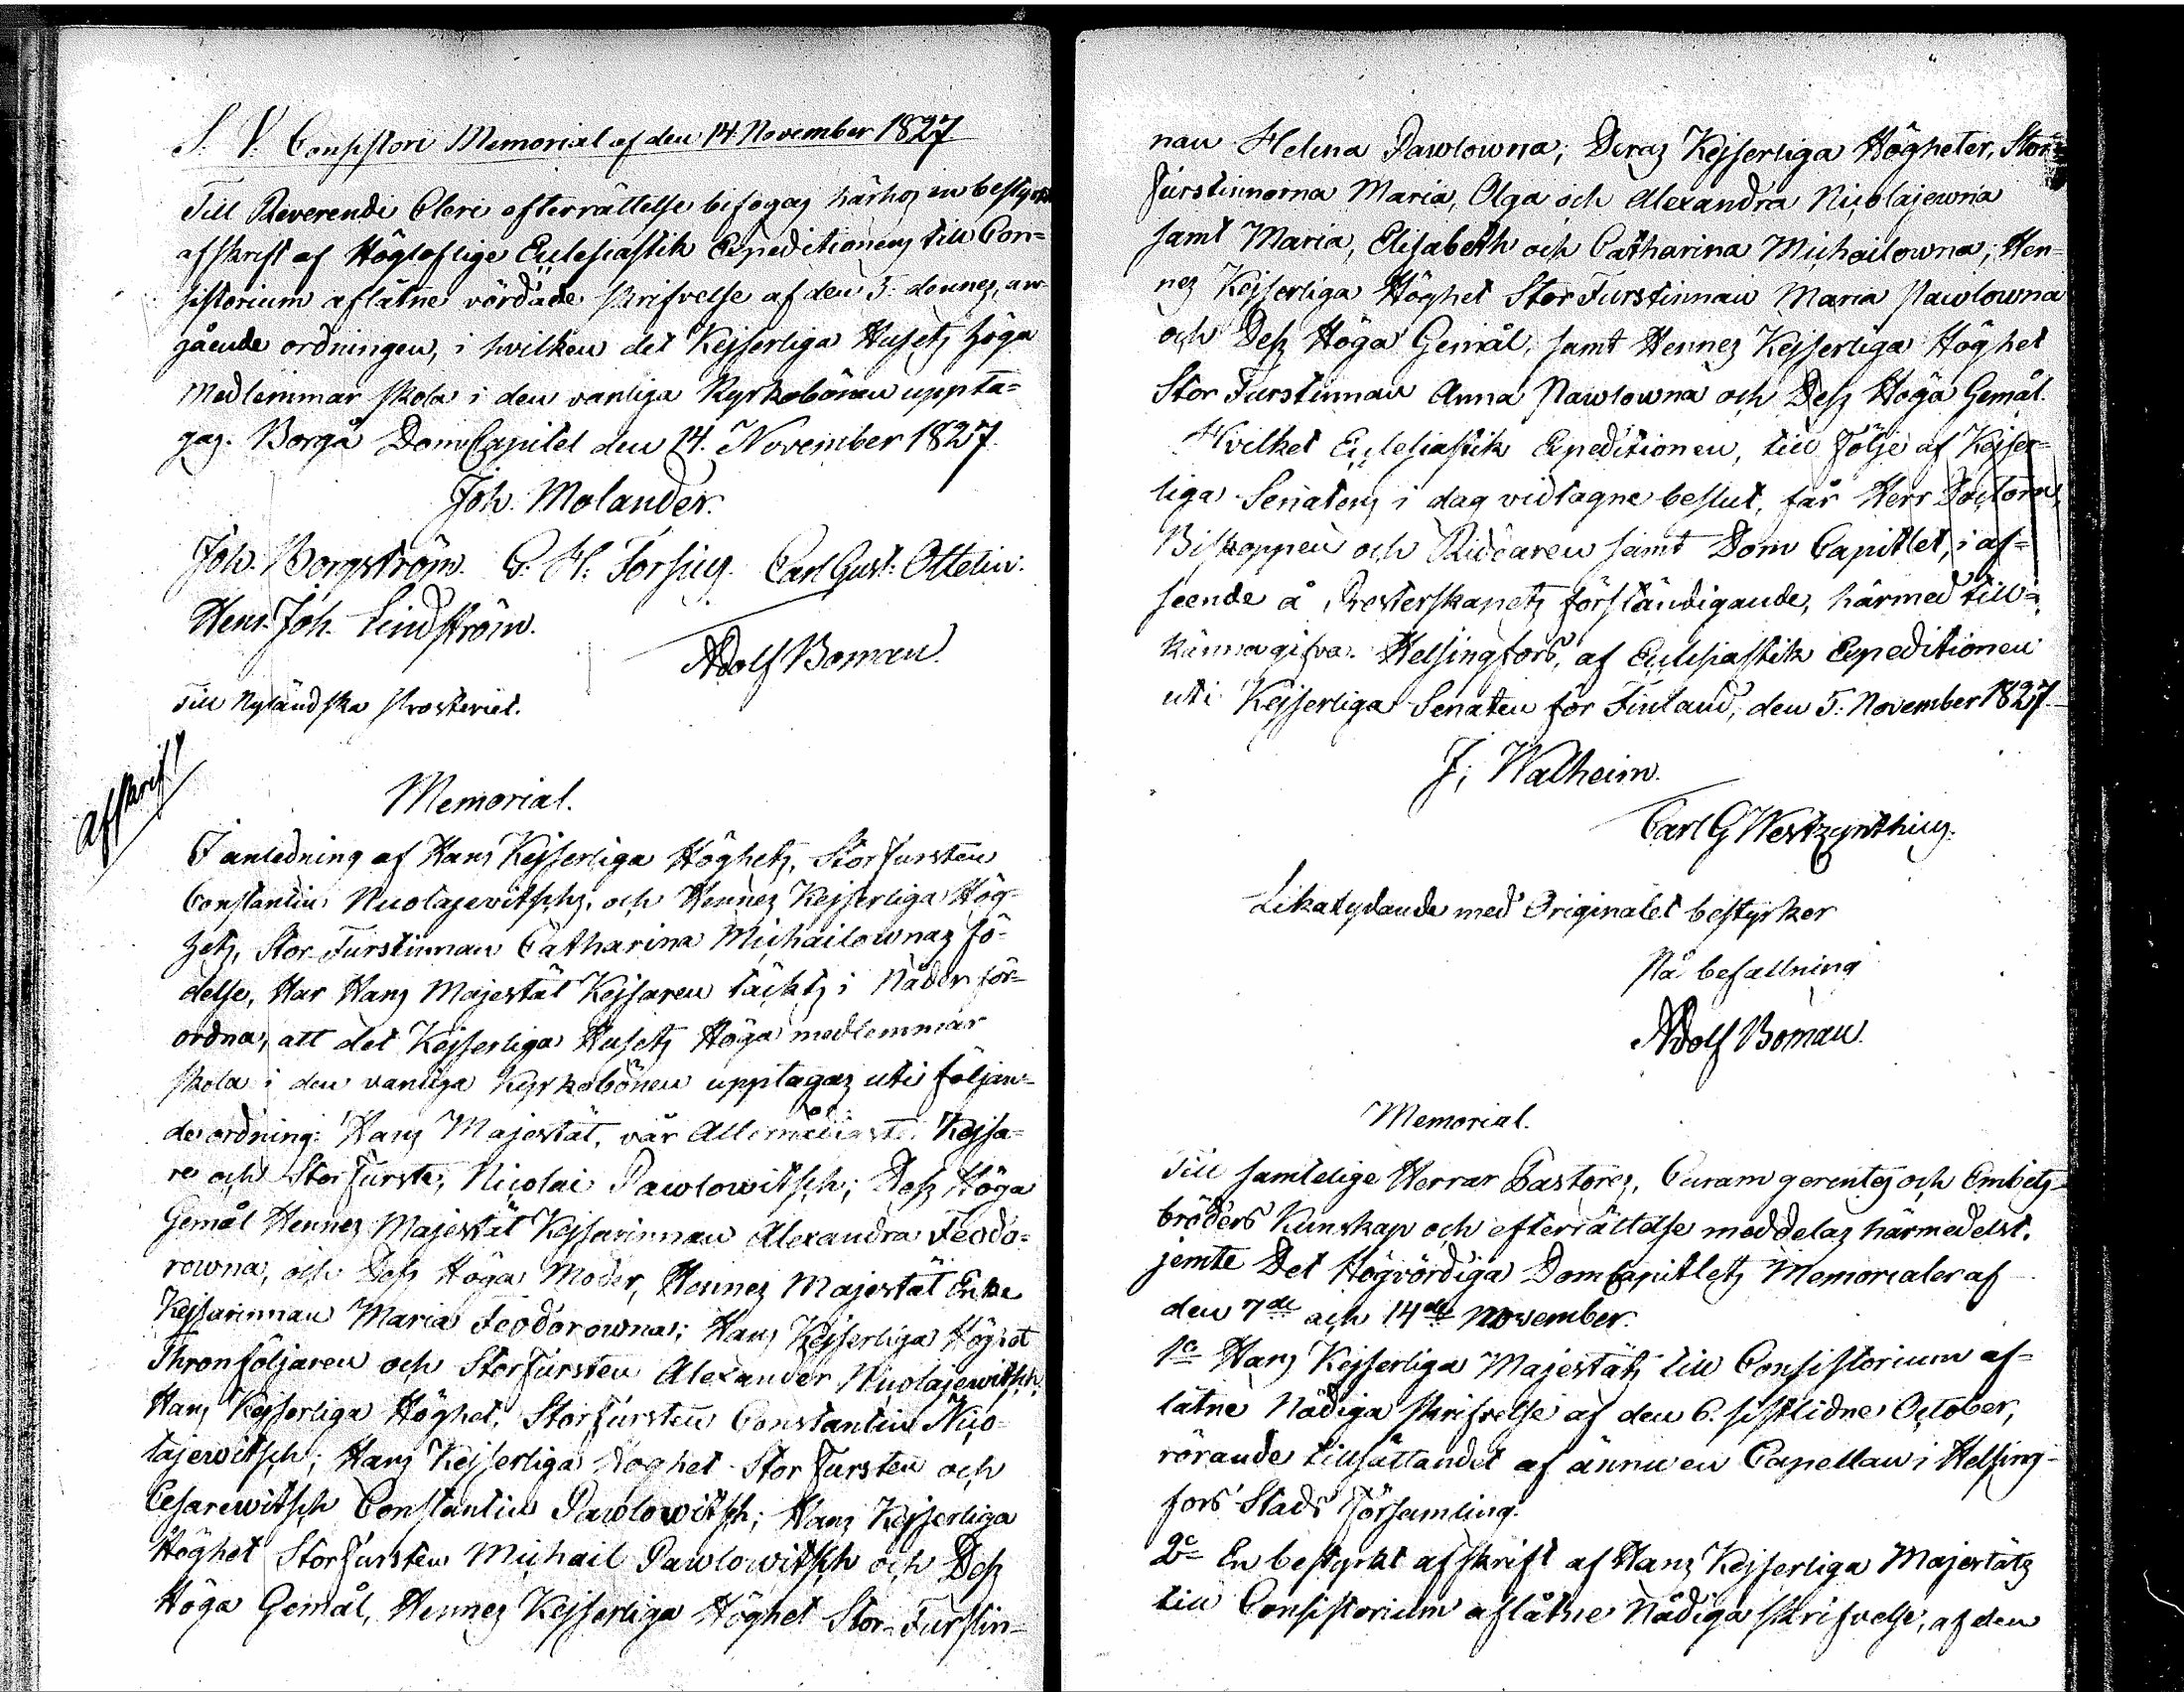 S. V. Consistorii Memorial af den 14 November 1827
Till Reverendi Cleri efterrättelse bifogas härhos en bestyrkt
afskrift af Högloflige Ecclesiastik Expeditionens till Con-
sistorium aflåtne vördade skrifvelse af den 5. dennes, an-
gående ordningen, i hvilken det Kejserliga Husets höga
medlemmar skola i den vanliga Kyrkobönen uppta-
gas. Borgå DomCapitel den 14. November 1827.
Joh. Molander.
Joh. Borgström. G. H. Forsius. Carl Gust. Ottelin.
Henr. Joh. Lindström.
Adolf Boman.
Till Nyländska Prosteriet.
Afskrift
Memorial.
I anledning af Hans Kejserliga Höghets, StorFursten
Constantin Nicolajevitschs, och Hennes Kejserliga Hög-
hets, Stor-Furstinnan Catharina Michailownas fö-
delse, Har Hans Majestät Kejsaren täckts i Nåder för-
ordna, att det Kejserliga Husets Höga medlemmar
skola i den vanliga Kyrkobönen upptagas uti följan-
de ordning: Hans Majestät, vår Allernådigste Kejsa-
re och StorFurste, Nicolai Pawlowitsch; Dess Höga
Gemål Hennes Majestät Kejsarinnan Alexandra Feodo-
rowna, och Dess Höga Moder, Hennes Majestät Enke
Kejsarinnan Maria Feodorowna; Hans Kejserliga Höghet
Thronföljaren och StorFursten Alexander Nicolajewitsch,
Hans Kejserliga Höghet, StorFursten Constantin Nico-
lajewitsch; Hans Kejserliga Höghet StorFursten och
Cesarewitsch Constantin Pawlowitsch; Hans Kejserliga
Höghet StorFursten Michail Pawlowitsch och Dess
Höga Gemål, Hennes Kejserliga Höghet Stor-Furstin-
nan Helena Pawlowna; Deras Kejserliga Högheter, Stor-
Furstinnorna Maria, Olga och Alexandra Nicolajewna
samt Maria, Elisabeth och Catharina Michailowna; Hen-
nes Kejserliga Höghet StorFurstinnan Maria Pawlowna
och Dess Höga Gemål, samt Hennes Kejserliga Höghet
StorFurstinnan Anna Pawlowna och Dess Höga Gemål.
Hvilket Ecclesiastik Expeditionen, till följe af Kejser-
liga Senatens i dag vidtagne beslut, får Herr Doctorn,
Biskoppen och Riddaren samt Dom Capitlet, i af-
seende å Presterskapets förständigande, härmed till-
kännagifva. Helsingfors, af Ecclesiastik Expeditionen
uti Kejserliga Senaten för Finland, den 5. November 1827.
J. Walheim.
Carl G Westzynthius.
Likalydande med Originalet bestyrker
På befallning
Adolf Boman.
Memorial.
Till samtelige Herrar Pastores, Curam gerentes och Embets-
bröders Kunskap och efterrättelse meddelas härmedelst,
jemte Det Högvördiga DomCapitlets Memorialer af
den 7de och 14de November.
1o Hans Kejserliga Majestäts till Consistorium af-
låtne Nådiga skrifvelse af den 6. sistlidne October,
rörande tillsättandet af ännu en Capellan i Helsing-
fors Stads Församling.
2o En bestyrkt afskrift af Hans Kejserliga Majestäts
till Consistorium aflåtne Nådiga skrifvelse, af den